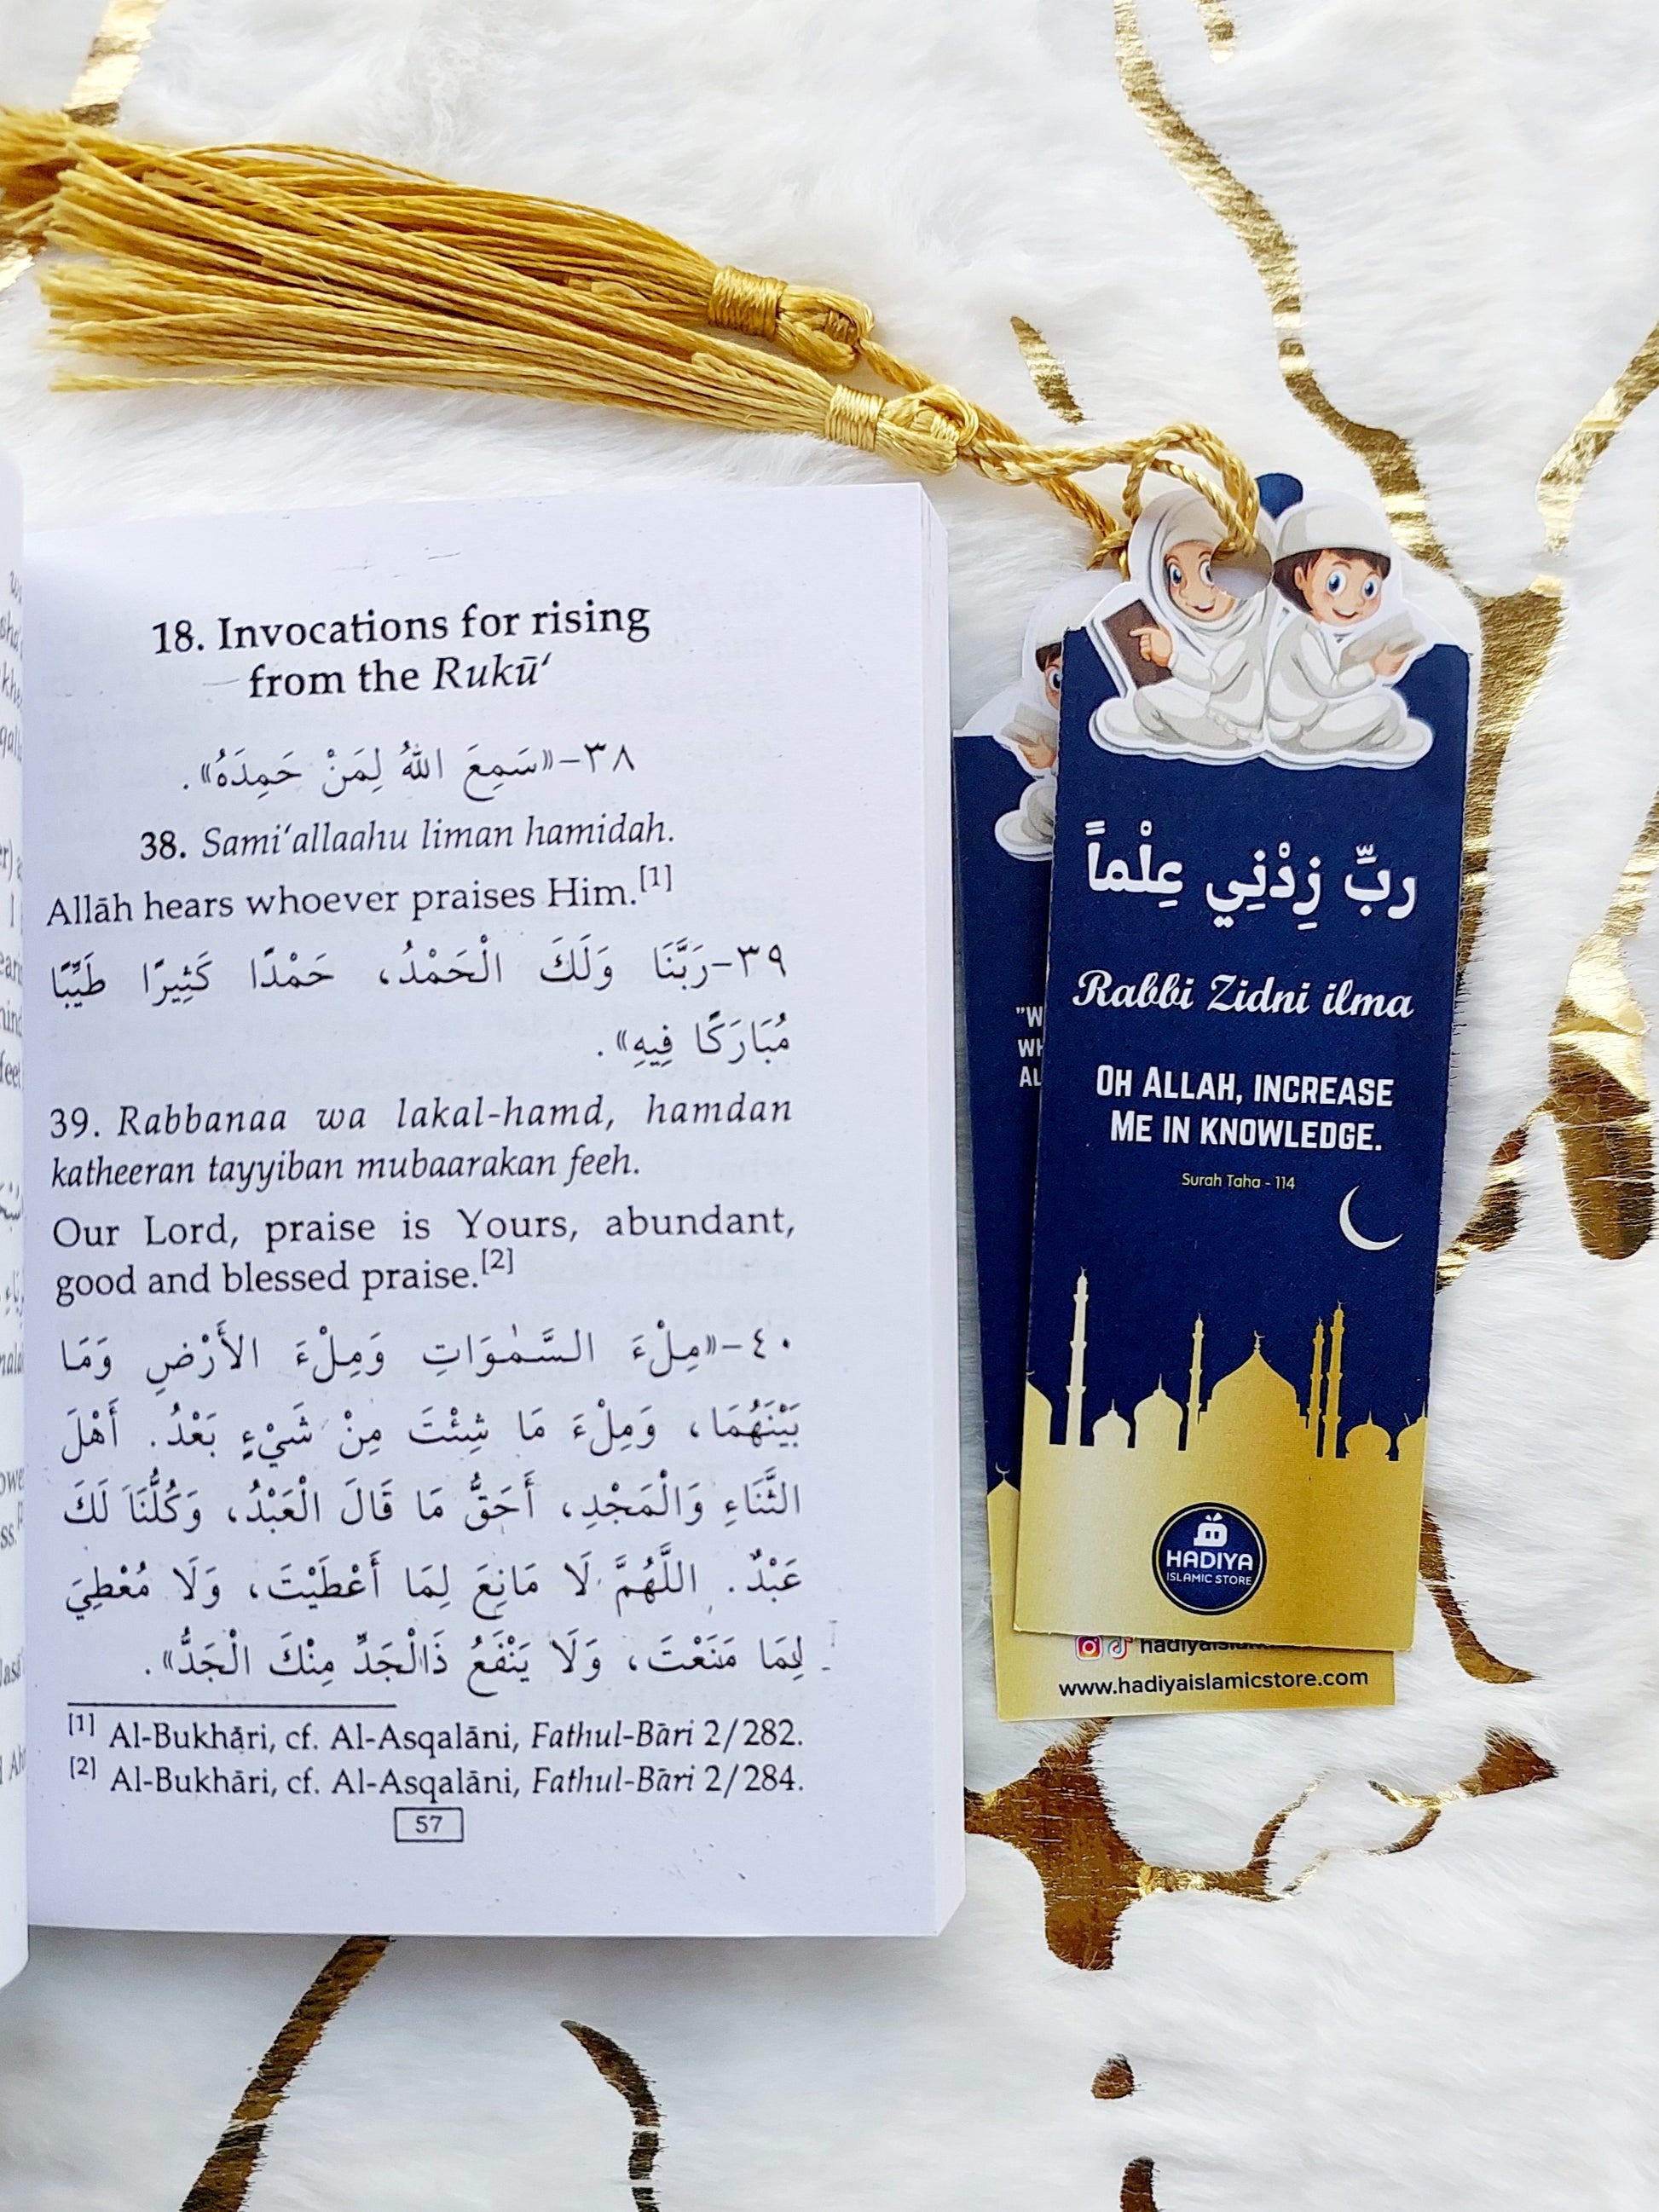 18. Invocations for rising
from the Rukū‘
٣٨-«سَمِعَ اللهُ لِمَنْ حَمِدَهُ».
38. Sami‘allaahu liman hamidah.
Allāh hears whoever praises Him.[1]
٣٩-رَبَّنَا وَلَكَ الْحَمْدُ، حَمْدًا كَثِيرًا طَيِّبًا
مُبَارَكًا فِيهِ».
39. Rabbanaa wa lakal-hamd, hamdan
katheeran tayyiban mubaarakan feeh.
Our Lord, praise is Yours, abundant,
good and blessed praise.[2]
٤٠-«مِلْءَ السَّمٰوَاتِ وَمِلْءَ الأَرْضِ وَمَا
بَيْنَهُمَا، وَمِلْءَ مَا شِئْتَ مِنْ شَيْءٍ بَعْدُ. أَهْلَ
الثَّنَاءِ وَالْمَجْدِ، أَحَقُّ مَا قَالَ الْعَبْدُ، وَكُلُّنَا لَكَ
عَبْدٌ. اللَّهُمَّ لَا مَانِعَ لِمَا أَعْطَيْتَ، وَلَا مُعْطِيَ
لِمَا مَنَعْتَ، وَلَا يَنْفَعُ ذَالْجَدِّ مِنْكَ الْجَدُّ».
[1] Al-Bukhāri, cf. Al-Asqalāni, Fathul-Bāri 2/282.
[2] Al-Bukhāri, cf. Al-Asqalāni, Fathul-Bāri 2/284.
57
ربِّ زِدْنِي عِلْماً
Rabbi Zidni ilma
OH ALLAH, INCREASE
ME IN KNOWLEDGE.
Surah Taha - 114
HADIYA
ISLAMIC STORE
www.hadiyaislamicstore.com